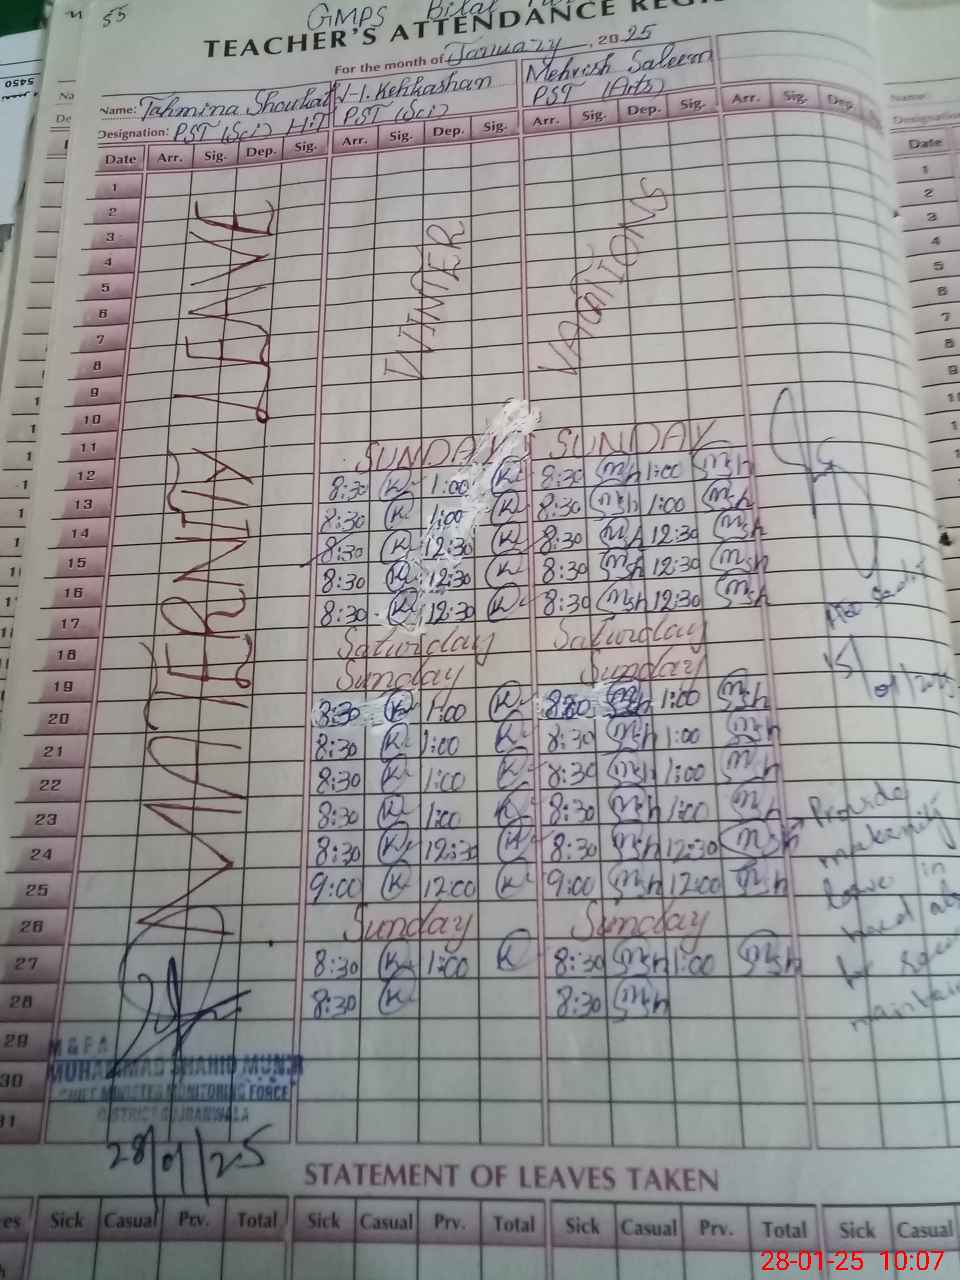 55
GMPS Bilal
TEACHER'S ATTENDANCE REG
For the month of January, 2025
Name: Tahmina Shoukat H.I. Kehkashan Mehvish Saleem
Designation: PST (Sci) H.T PST (Sci) PST (Arts)
Date Arr. Sig. Dep. Sig. Arr. Sig. Dep. Sig. Arr. Sig. Dep. Sig. Arr. Sig. Dep.
MATERNITY LEAVE
WINTER VACATIONS
1
2
3
4
5
6
7
8
9
10
11
12 SUNDAY SUNDAY
13 8:30 K 1:00 K 8:30 Msh 1:00 Msh
14 8:30 K 1:00 K 8:30 Msh 1:00 Msh
15 8:30 K 12:30 K 8:30 Msh 12:30 Msh
16 8:30 K 12:30 K 8:30 Msh 12:30 Msh
17 8:30 K 12:30 K 8:30 Msh 12:30 Msh
18 Saturday Saturday
19 Sunday Sunday
20 8:30 K 1:00 K 8:30 Msh 1:00 Msh
21 8:30 K 1:00 K 8:30 Msh 1:00 Msh
22 8:30 K 1:00 K 8:30 Msh 1:00 Msh
23 8:30 K 1:00 K 8:30 Msh 1:00 Msh
24 8:30 K 12:30 K 8:30 Msh 12:30 Msh
25 9:00 K 12:00 K 9:00 Msh 12:00 Msh
26 Sunday Sunday
27 8:30 K 1:00 K 8:30 Msh 1:00 Msh
28 8:30 K 8:30 Msh
29
30
31
Provide
maternity
leave in
maintain
M & E A
MUHAMMAD SHAHID MUNIR
CHIEF MINISTER MONITORING FORCE
DISTRICT GUJRANWALA
28/01/25
STATEMENT OF LEAVES TAKEN
Sick Casual Prv. Total Sick Casual Prv. Total Sick Casual Prv. Total Sick Casual
28-01-25 10:07